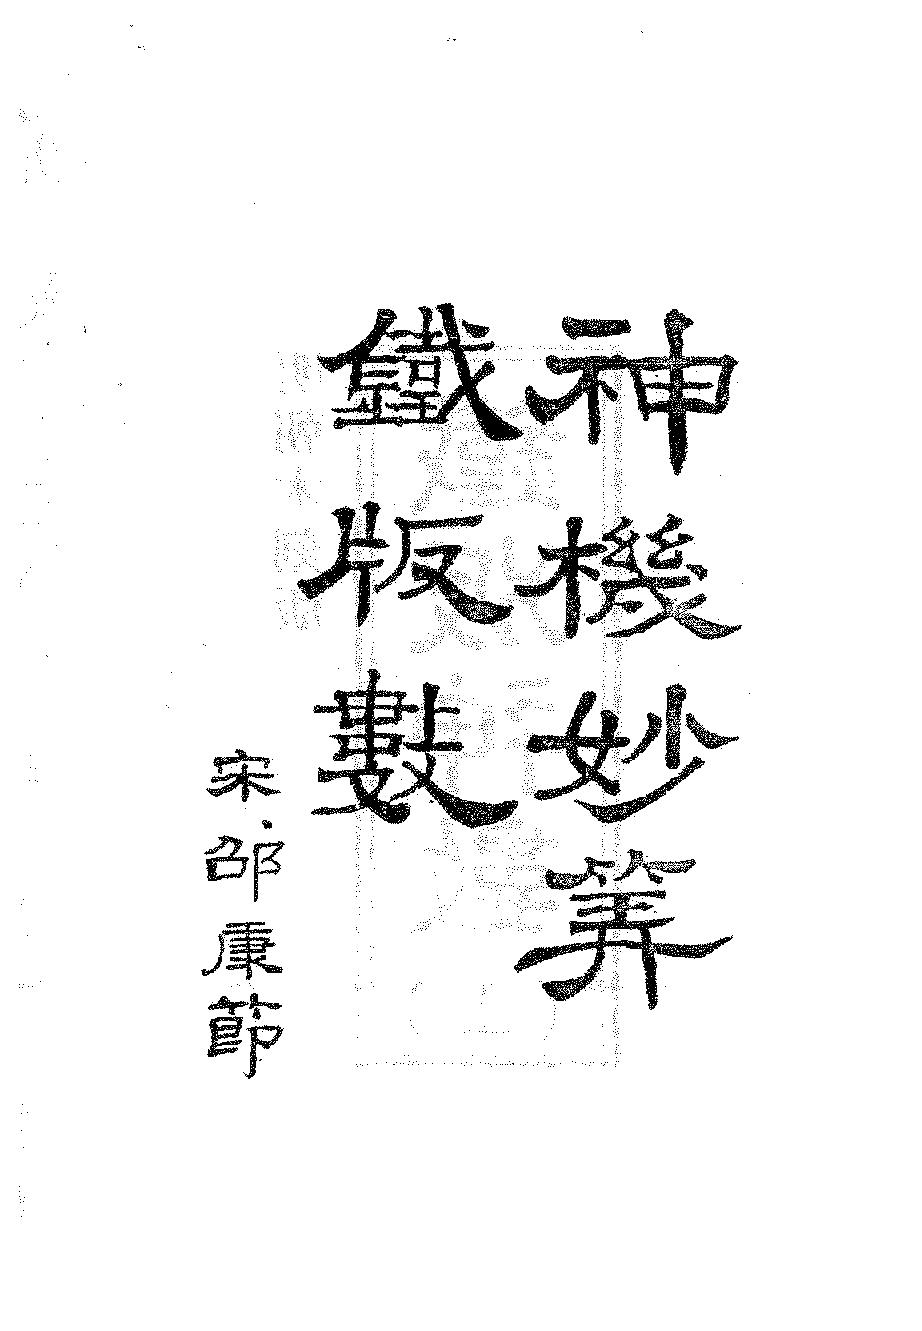 神機妙筭
鐵版數
宋邵康節